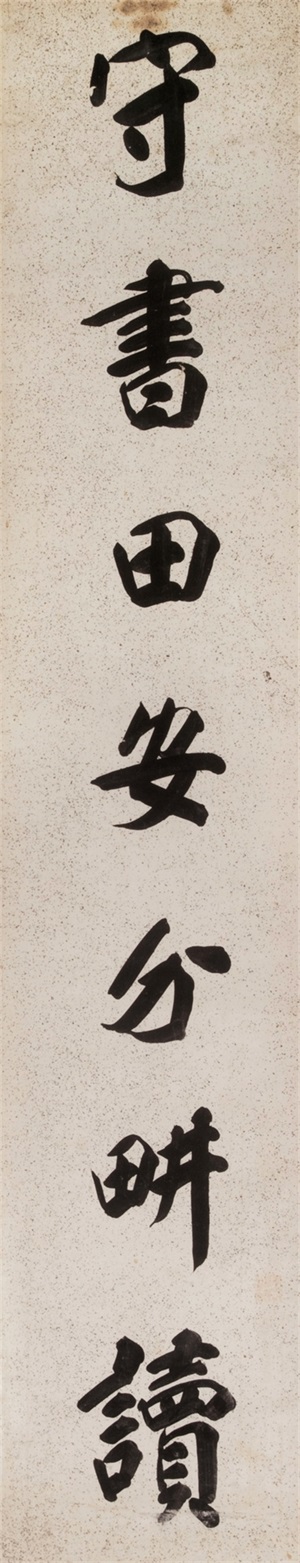 守書田安分畊讀